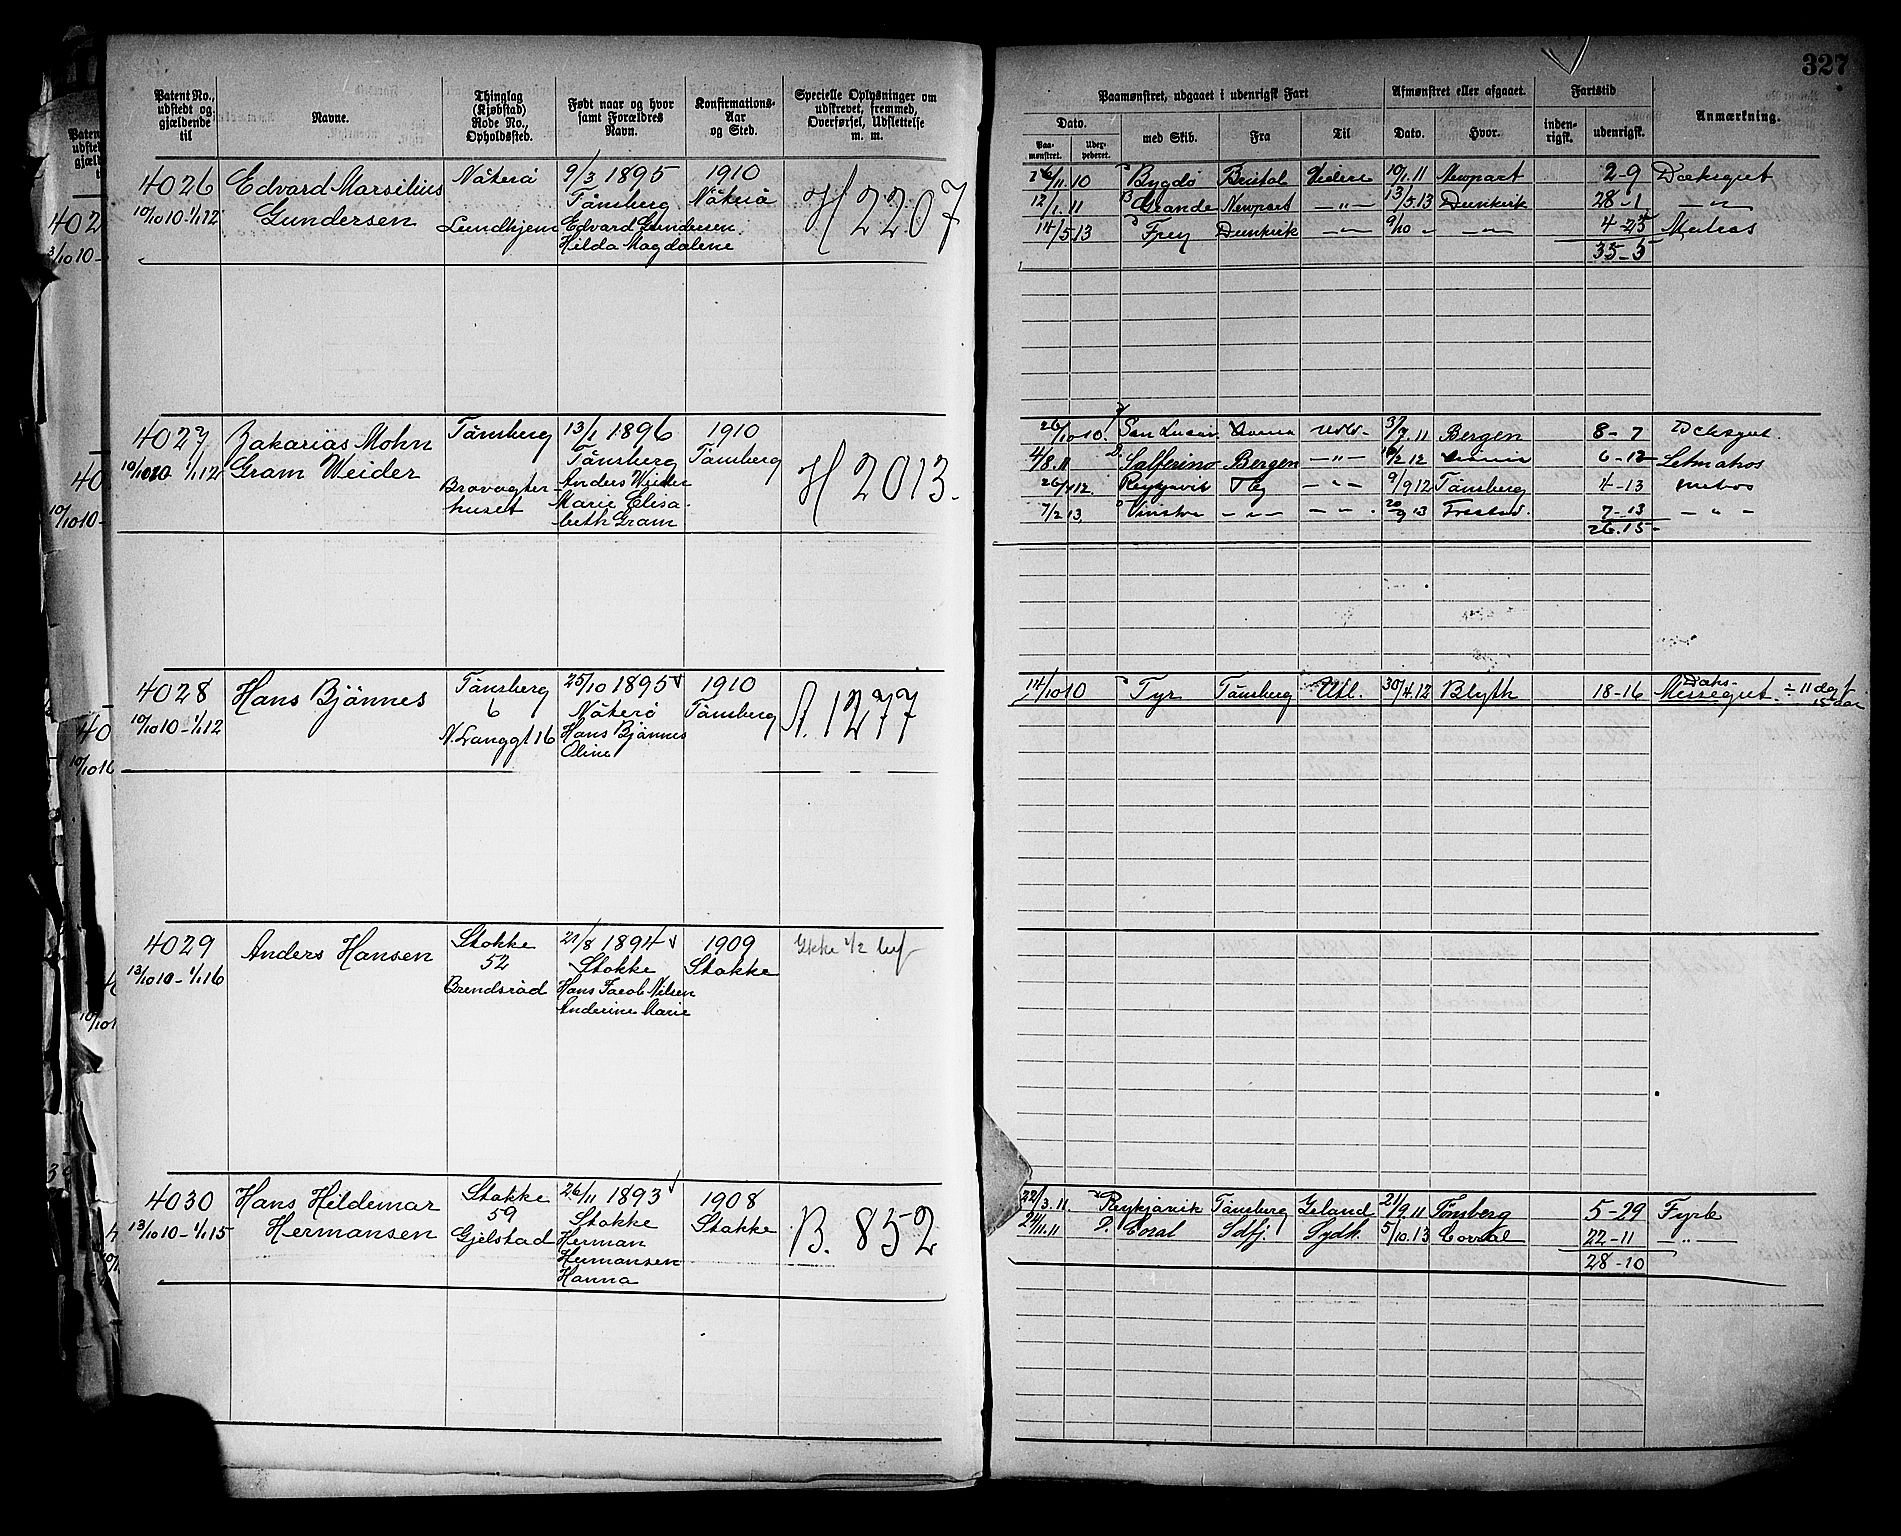 327
Patent No., udstedt og gjældende til
Navne.
Thinglag (Kjøbstad) Rode No., Opholdssted.
Født naar og hvor samt Forældres Navn.
Konfirmations-Aar og Sted.
Specielle Oplysninger om udskrevet, fremmed, Overførsel, Udslettelse m. m.
Paamønstret, udgaaet i udenrigsk Fart
Afmønstret eller afgaaet.
Fartstid
Anmærkning.
Dato.
med Skib.
Fra
Til
Dato.
Hvor.
inden-rigsk.
udenrigsk.
Paa-mønstret.
4026 Edvard Marsilius Nøterø 9/3 1895 1910 H 2207
10/10 10 - 1/1 12 Gundersen Lundhjem Tønsberg Nøterø
Edvard Gundersen
Hilda Magdalene
26/11.10 Bygdø Bristol Videre 10/1.11 Newport 2-9 Dæksgut
12/1.11 Grande Newport -"- 13/5.13 Dunkirk 28-1 -"-
14/5.13 Frey Dunkirk -"- 9/10 " -"- 4-25 Matros
35-5
4027 Zakarias Mohn Tønsberg 13/1 1896 1910 H 2013.
10/10 10 1/1 12 Gram Weider Tønsberg Tønsberg
Bravagter-huset
Anders Weider
Marie Elisa-
beth Gram
26/10 10. San Lucar 3/7.11 Bergen 8-7
4/8.11 Salferino Bergen -"- 2.12 6-12 Letmatros
26/4 12. Reykjavik -"- 9/9 12 Tønsberg 4-13
7/2 13. -"- -"- 20/9 13 7-13 -"-
26.15-
4028 Hans Bjønnes Tønsberg 25/10 1895 1910 A. 1277
10/10 10 - 1/1 12 6 Nøterø Tønsberg
N. Langgt 16 Hans Bjønnes
Oline
14/10 10 Tyr Tønsberg Utl. 30/4.12 Blyth 18-16 Messegut
4029 Anders Hansen Stokke 21/8 1894 1909 Ikke
13/10 10 - 1/1 16 52 Stokke Stokke
Brendsrød Hans Jacob Nilsen
Anderine Marie
4030 Hans Hildemar Stokke 26/11 1893 1908 B. 852
13/10 10 - 1/1 15 Hermansen 59 Stokke Stokke
Gjelstad Herman
Hermansen
Hanna
22/3.11 Reykjavik Tønsberg Island 21/9.11 Tønsberg 5-29 Fyrb
24/11.11 Coral Sdfj. Sydh. 5/10.13 Corral 22-11 -"-
28-10